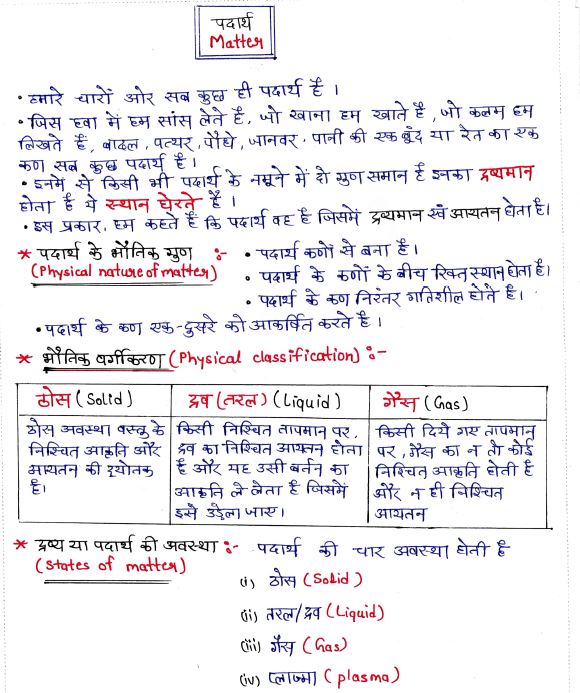 पदार्थ
Matter
• हमारे चारों ओर सब कुछ ही पदार्थ है ।
• जिस हवा में हम सांस लेते हैं, जो खाना हम खाते हैं, जो कलम हम
लिखते हैं, बादल, पत्थर, पौधे, जानवर, पानी की एक बूंद या रेत का एक
कण सब कुछ पदार्थ है।
• इनमें से किसी भी पदार्थ के नमूने में दो गुण समान हैं इनका द्रव्यमान
होता है ये स्थान घेरते हैं ।
• इस प्रकार, हम कहते हैं कि पदार्थ वह है जिसमें द्रव्यमान एवं आयतन होता है।
* पदार्थ के भौतिक गुण :- • पदार्थ कणों से बना है।
(Physical nature of matter) • पदार्थ के कणों के बीच रिक्त स्थान होता है।
• पदार्थ के कण निरंतर गतिशील होते है।
• पदार्थ के कण एक-दूसरे को आकर्षित करते है ।
* भौतिक वर्गीकरण (Physical classification) :-
ठोस (Solid) द्रव (तरल) (Liquid) गैस (Gas)
ठोस अवस्था वस्तु के
निश्चित आकृति और
आयतन की द्योतक
है।
किसी निश्चित तापमान पर,
द्रव का निश्चित आयतन होता
है और यह उसी बर्तन का
आकृति ले लेता है जिसमें
इसे उड़ेला जाए।
किसी दिये गए तापमान
पर, गैस का न तो कोई
निश्चित आकृति होती है
और न ही निश्चित
आयतन
* द्रव्य या पदार्थ की अवस्था :- पदार्थ की चार अवस्था होती है
(States of matter)
(i) ठोस (Solid)
(ii) तरल/द्रव (Liquid)
(iii) गैस (Gas)
(iv) प्लाज्मा (plasma)